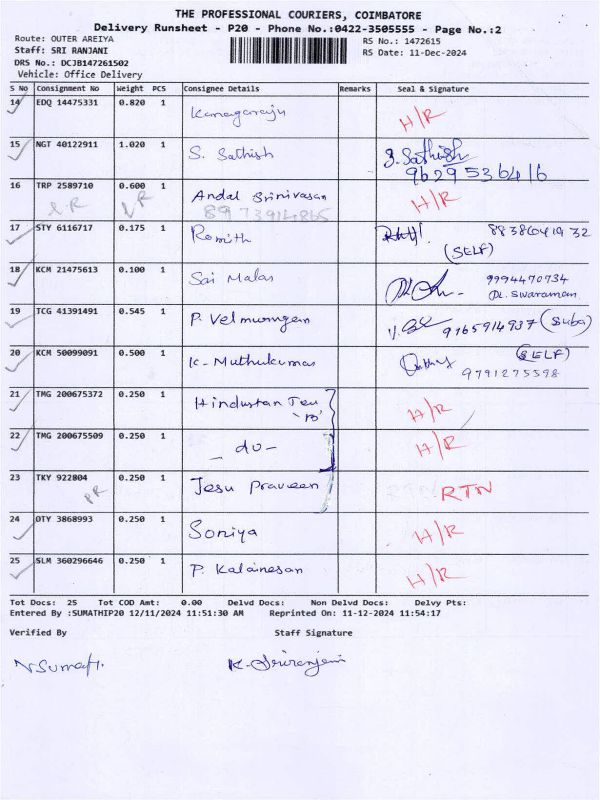 THE PROFESSIONAL COURIERS, COIMBATORE
Delivery Runsheet - P20 - Phone No.:0422-3505555 - Page No.:2
Route: OUTER AREIYA RS No.: 1472615
Staff: SRI RANJANI RS Date: 11-Dec-2024
DRS No.: DCJB147261502
Vehicle: Office Delivery
S No Consignment No Weight PCS Consignee Details Remarks Seal & Signature
14 EDQ 14475331 0.820 1 Kanagaraju H/R
15 NGT 40122911 1.020 1 S. Sathish S. Sathish
9629536416
16 TRP 2589710 0.600 1 Andal Srinivasan H/R
17 STY 6116717 0.175 1 Romith
(SELF)
18 KCM 21475613 0.100 1 Sai Malar 9994470934
19 TCG 41391491 0.545 1 P. Velmurugan 9165914937 (Suba)
20 KCM 50099091 0.500 1 K. Muthukumar (SELF)
9791275598
21 TMG 200675372 0.250 1 Hindustan H/R
22 TMG 200675509 0.250 1 - do - H/R
23 TKY 922804 0.250 1 Jesu Praveen RTN
24 OTY 3868993 0.250 1 Soniya H/R
25 SLM 360296646 0.250 1 P. Kalainesan H/R
Tot Docs: 25 Tot COD Amt: 0.00 Delvd Docs: Non Delvd Docs: Delvy Pts:
Entered By :SUMATHIP20 12/11/2024 11:51:30 AM Reprinted On: 11-12-2024 11:54:17
Verified By Staff Signature
K. Sriranjani